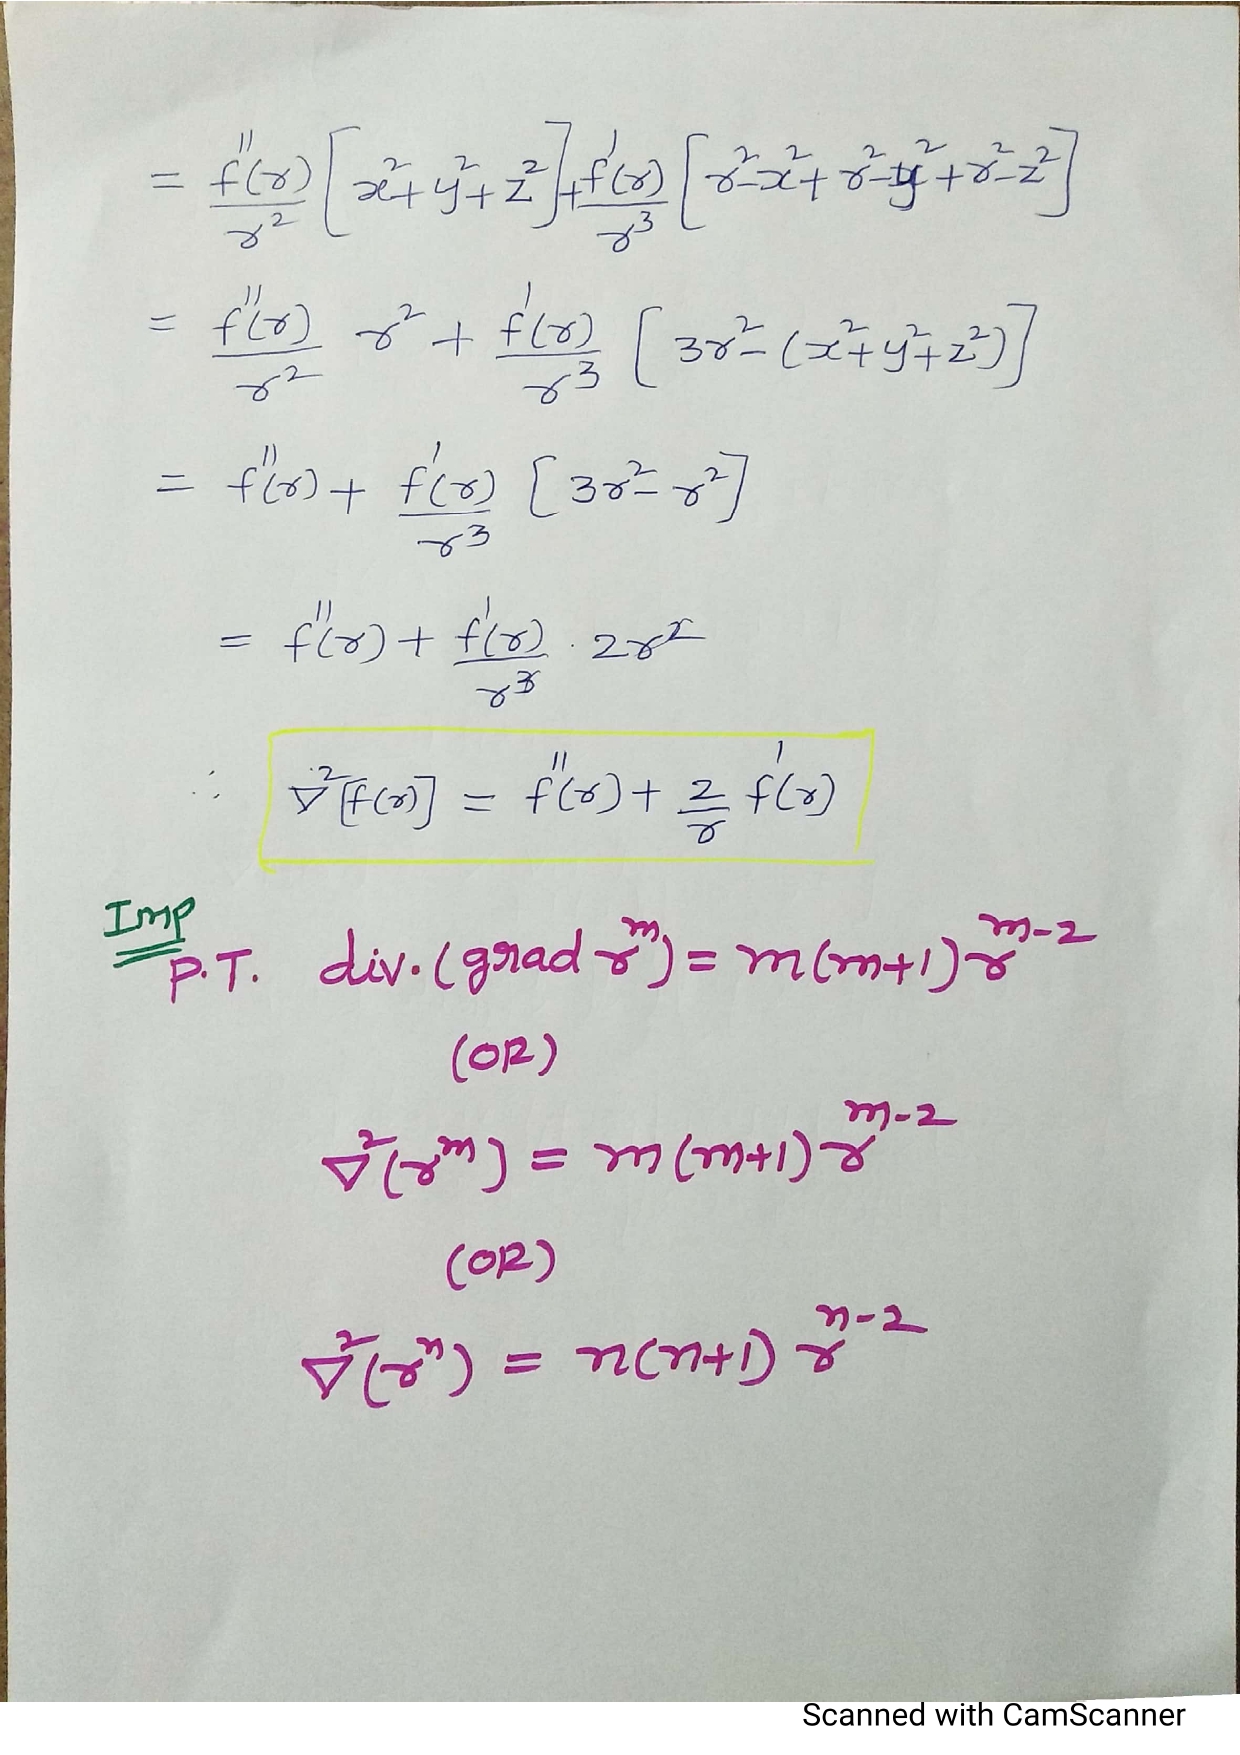 = f''(r)/r² [x²+y²+z²] + f'(r)/r³ [r²-x²+r²-y²+r²-z²]
= f''(r)/r² r² + f'(r)/r³ [3r²-(x²+y²+z²)]
= f''(r) + f'(r)/r³ [3r²-r²]
= f''(r) + f'(r)/r³ · 2r²
∴ ∇²[f(r)] = f''(r) + 2/r f'(r)
Imp
P.T. div.(grad r^m) = m(m+1) r^(m-2)
(OR)
∇²(r^m) = m(m+1) r^(m-2)
(OR)
∇²(r^n) = n(n+1) r^(n-2)
Scanned with CamScanner